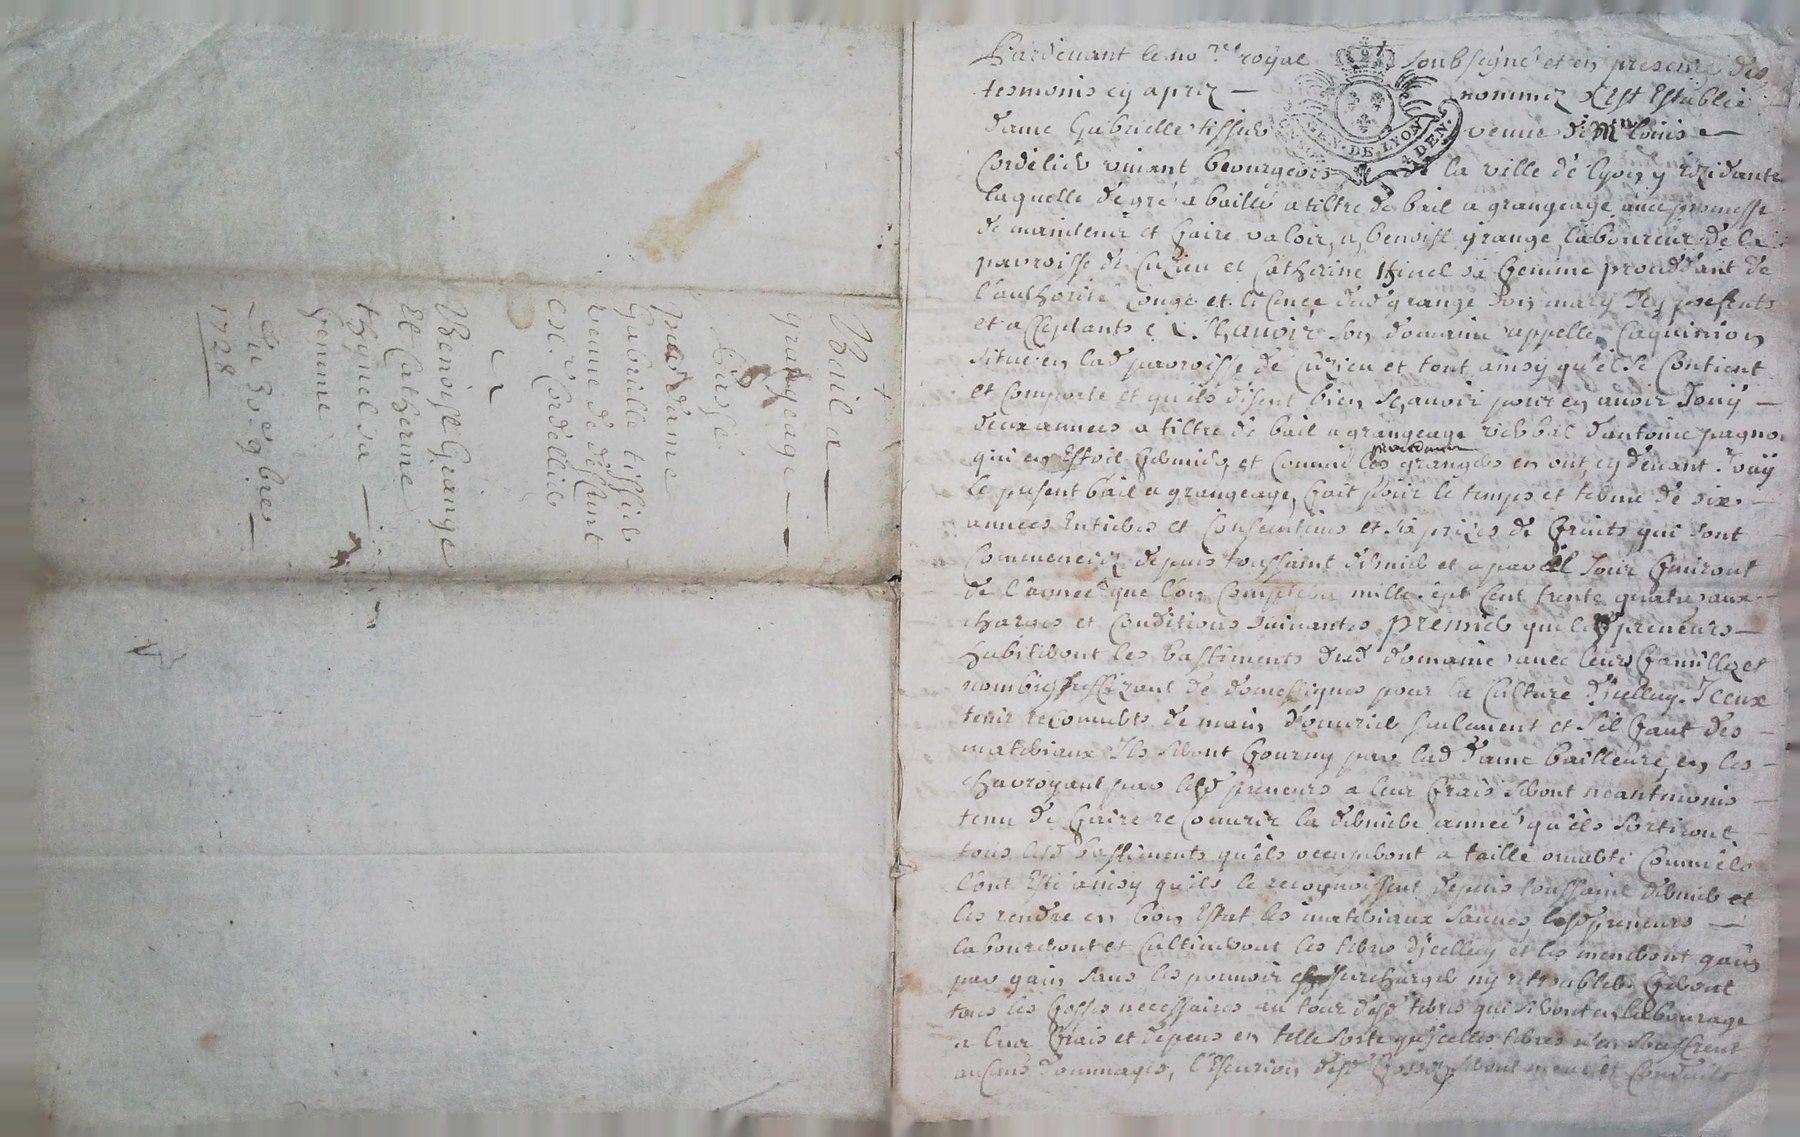 Bail a
grangeage
Passé
par dame
Gabrielle tissier
veuve de deffunt
Cordellier
a
Benoist Grange
Et Catherine
thynel sa
femme
Du 30e 9bre
1728
Pardevant le nore royal soubsigné et en presence des
tesmoins cy aprez nommez s'Est Establie
dame Gabrielle tissier veuve de Mr Louis
Cordelier vivant bourgeois de la ville de lyon y rezidante
GEN. DE LYON
DEN.
laquelle de gré a baillé a tiltre de bail a grangeage avec promesse
de maintenir et faire valoir, a benoist grange laboureur de la
parroisse de Cuzieu et Catherine thinel sa femme proceddant de
l'authorité Congé et licence dud grange son mary Icy presents
et acceptants Scavoir son domaine appellé
situé en lad parroisse de Cuzieu et tout ainsy qu'il se Contient
et Comporte et qu'ils disent bien scavoir pour en avoir Jouÿ
deux années a tiltre de bail a grangeage d'antoine pagnon
qui en Estoit fermier, et Comme les precedents grangers en ont cy devant Jouÿ
le present bail a grangeage, fait pour le temps et terme de six
années Entieres et Consecutives et six prizes de fruits qui sont
Commencéz depuis toussaint dernier et a pareil Jour finiront
de l'année que l'on Comptera mille sept Cent trente quatre, aux
charges et Conditions suivantes, premier que lesd preneurs
habiteront les bastiments dud domaine avec leurs famille et
nombre suffizant de domestiques pour la Culture d'icelluy. Iceux
tenir recouverts de main d'ouvrier seulement et s'il faut des
materiaux Ils seront fourny par lad dame bailleure, en les
charroyant par lesd preneurs a leur frais seront neantmoins
tenu de faire recouvrir la derniere année qu'ils sortiront
tous lesd bastiments qu'ils occuperont a taille ouverte Comme ils
l'ont Esté ainsy qu'ils le recognoissent depuis toussaint dernier et
les rendre en bon Estat les materiaux sauves, lesd preneurs
laboureront et Cultiveront les terres d'icelluy et les meneront gain
par gain sans les pouvoir surcharger ny retroubler, feront
tous les fossés necessaires au tour desd terres qui seront en labourage
a leur frais et depens en telle sorte qu'icelles terres n'en souffrent
aucuns dommages, l'Escurion desd fossez seront mené et Conduits